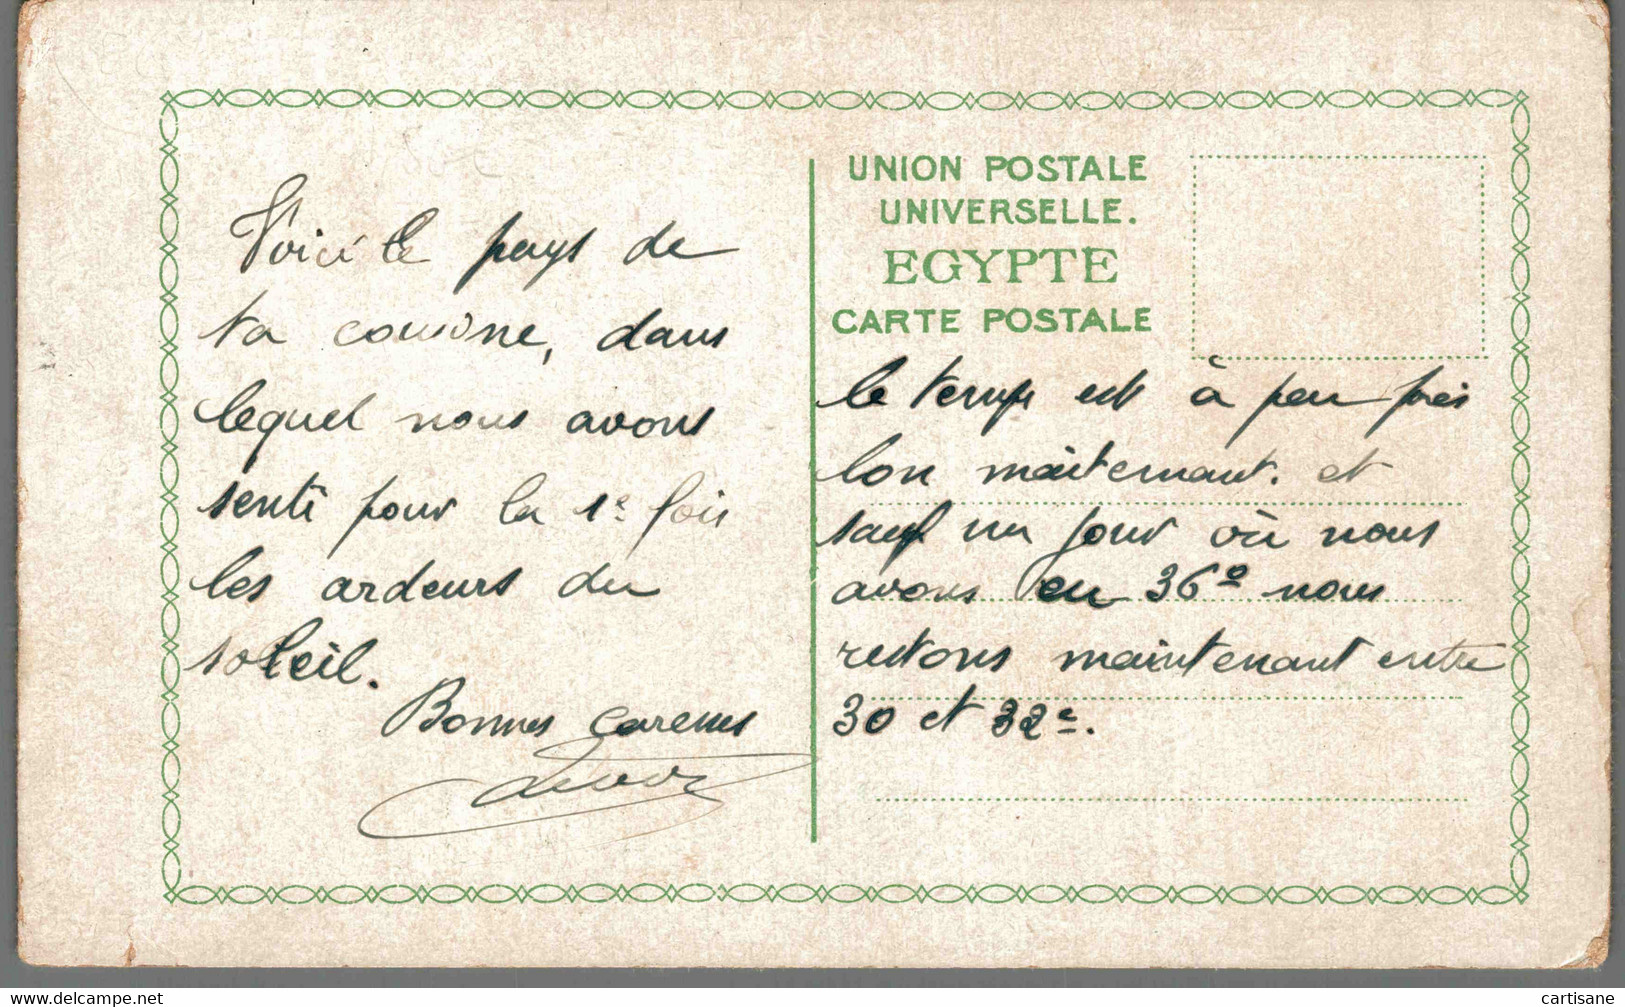 Voici le pays de
ta cousine, dans
lequel nous avons
senti pour la 1e fois
les ardeurs du
soleil.
Bonnes caresses
UNION POSTALE
UNIVERSELLE.
EGYPTE
CARTE POSTALE
le temps est à peu près
bon maintenant. et
sauf un jour où nous
avons eu 36º nous
restons maintenant entre
30 et 32e.
cartisane